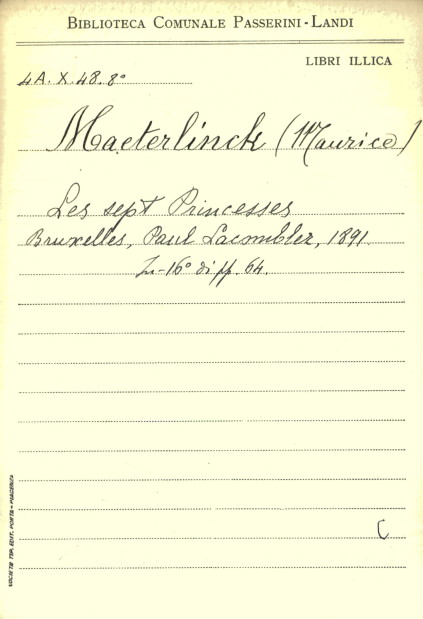 BIBLIOTECA COMUNALE PASSERINI-LANDI
LIBRI ILLICA
4A. X. 48. 8°
Maeterlinck (Maurice)
Les sept Princesses
Bruxelles, Paul Lacomblez, 1891.
In-16° di pp. 64.
SOCIETÀ TIP. EDIT. PORTA - PIACENZA